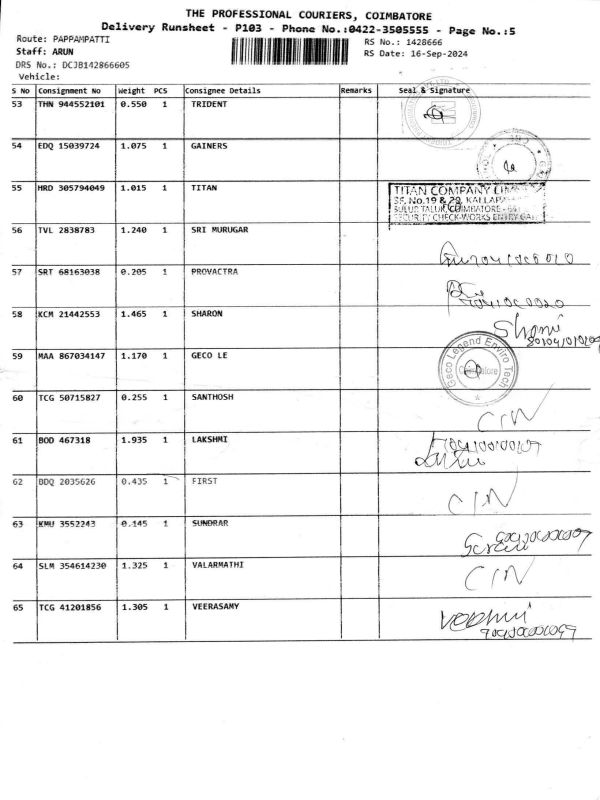 THE PROFESSIONAL COURIERS, COIMBATORE
Delivery Runsheet - P103 - Phone No.:0422-3505555 - Page No.:5
Route: PAPPAMPATTI
RS No.: 1428666
Staff: ARUN
RS Date: 16-Sep-2024
DRS No.: DCJB142866605
Vehicle:
S No Consignment No Weight PCS Consignee Details Remarks Seal & Signature
53 THN 944552101 0.550 1 TRIDENT
54 EDQ 15039724 1.075 1 GAINERS
55 HRD 305794049 1.015 1 TITAN
TITAN COMPANY
SF. No.19 & 20, KALLAPA
SULUR TALUK, COIMBATORE - 641
SECURITY CHECK-WORKS ENTRY GA
56 TVL 2838783 1.240 1 SRI MURUGAR
57 SRT 68163038 0.205 1 PROVACTRA
58 KCM 21442553 1.465 1 SHARON
59 MAA 867034147 1.170 1 GECO LE
Geco Legend Enviro Tech
Coimbatore
60 TCG 50715827 0.255 1 SANTHOSH CIN
61 BOD 467318 1.935 1 LAKSHMI
62 BDQ 2035626 0.435 1 FIRST CIN
63 KMU 3552243 0.145 1 SUNDRAR
64 SLM 354614230 1.325 1 VALARMATHI CIN
65 TCG 41201856 1.305 1 VEERASAMY